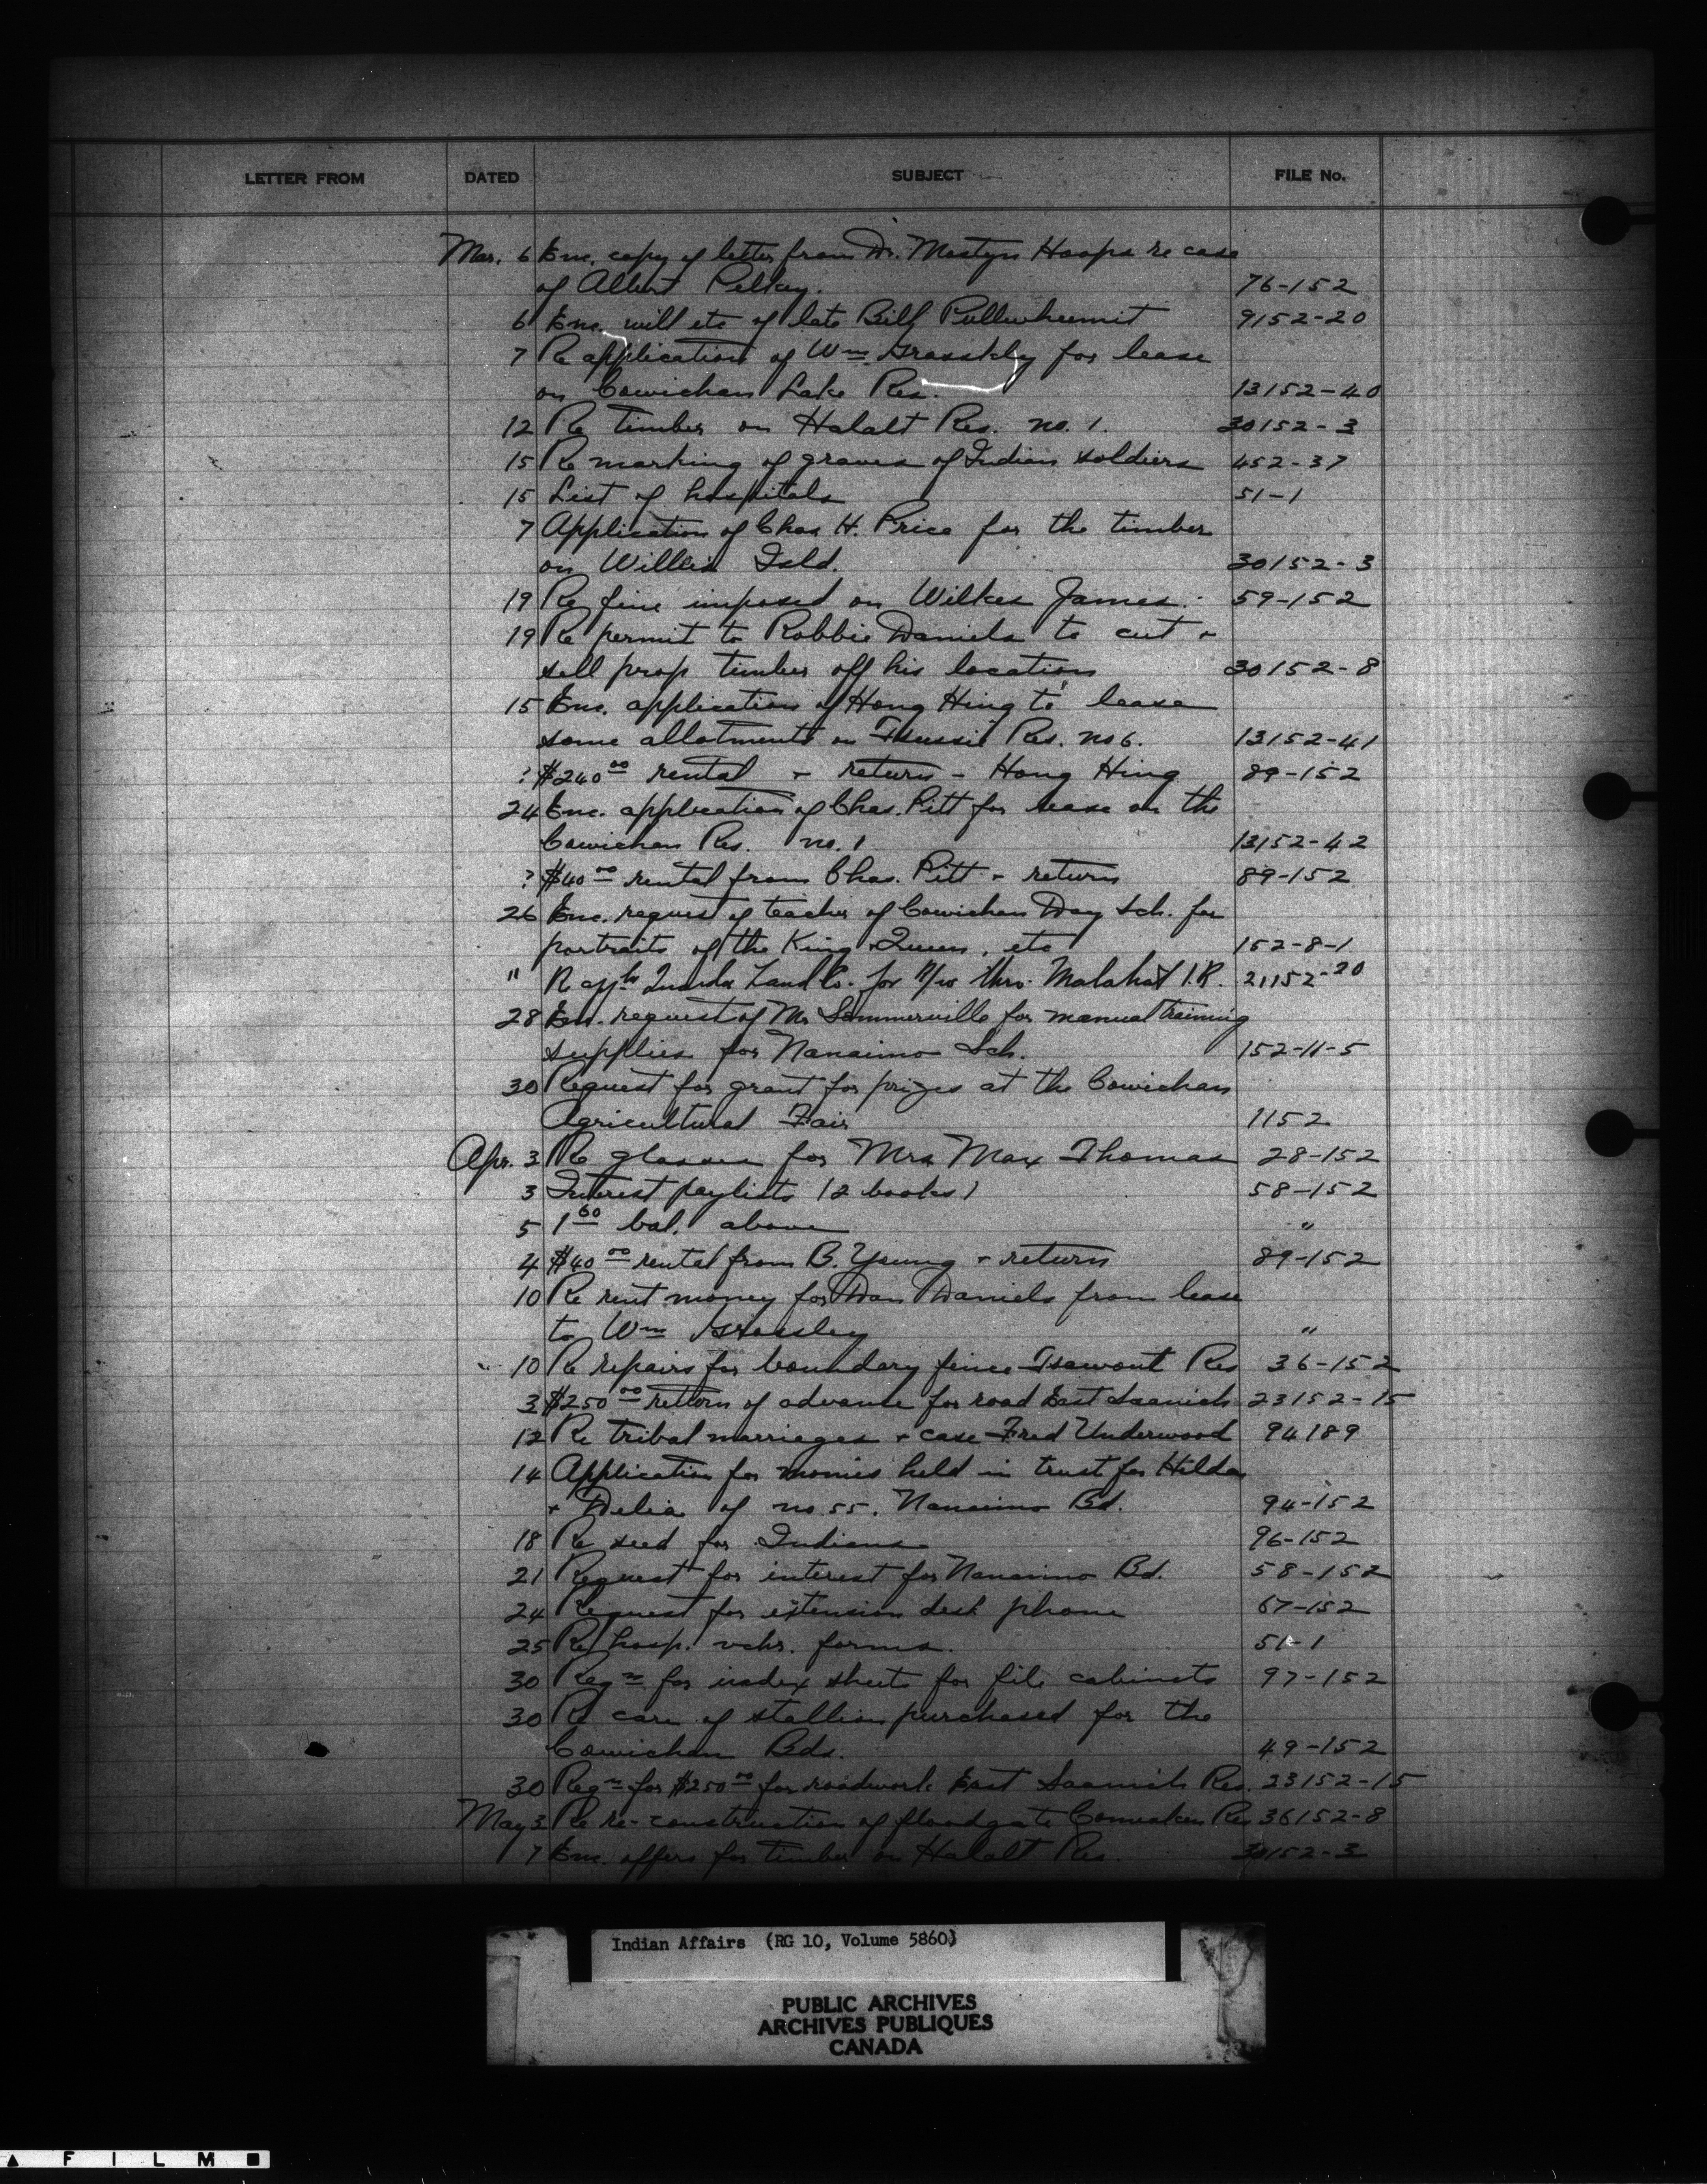 LETTER FROM DATED SUBJECT FILE No.
Mar. 6 Enc. copy of letter from Dr. Mostyn Hoops re case
of Albert Pelkey. 76-152
6 Enc. will etc of late Bill 9152-20
7 Re application of Wm Grasskly for lease
on Cowichan Lake Res. 13152-40
12 Re timber on Halalt Res. no. 1. 30152-3
15 Re marking of graves of Indian soldiers 452-37
15 List of hospitals 51-1
7 Application of Chas H. Price for the timber
on Willis Isld. 30152-3
19 Re fine imposed on Wilkes James. 59-152
19 Re permit to Robbie Daniels to cut +
sell prop timber off his location 30152-8
15 Enc. application of Hong Hing to lease
some allotments on Tsussie Res. no 6. 13152-41
? $240 00 rental + return - Hong Hing 89-152
24 Enc. application of Chas. Pitt for lease on the
Cowichan Res. no. 1 13152-42
? $40 00 rental from Chas. Pitt + return 89-152
26 Enc. request of teacher of Cowichan Day Sch. for
portraits of the King + Queen, etc 152-8-1
" R appln Land Co. for r/w thro. Malahat I.R. 21152-20
28 Enc. request of Mr Sommerville for manual training
supplies for Nanaimo Sch. 152-11-5
30 Request for grant for prizes at the Cowichan
Agricultural Fair 1152
Apr. 3 Re glasses for Mrs Max Thomas 28-152
3 Interest paylists (2 books) 58-152
5 1 60 bal. above "
4 $40 00 rental from B. Young + return 89-152
10 Re rent money for Dan Daniels from lease
to Wm Grassley "
10 Re repairs for boundary fence Tsawout Res 36-152
3 $250 00 return of advance for road East Saanich 23152-15
12 Re tribal marriages + case Fred Underwood 94189
14 Application for monies held in trust for Hilda
+ Delia of no 55. Nanaimo Bd. 94-152
18 Re seed for Indians 96-152
21 Request for interest for Nanaimo Bd. 58-152
24 Request for extension desk phone 67-152
25 Re hosp. vchr. forms. 51-1
30 Reqn for index sheets for file cabinets 97-152
30 Re care of stallion purchased for the
Cowichan Bds. 49-152
30 Reqn for $250 00 for roadwork East Saanich Res. 23152-15
May 3 Re re-construction of floodgate Comeaken Res 36152-8
7 Enc. offers for timber on Halalt Res. 30152-3
Indian Affairs (RG 10, Volume 5860)
PUBLIC ARCHIVES
ARCHIVES PUBLIQUES
CANADA
FILM